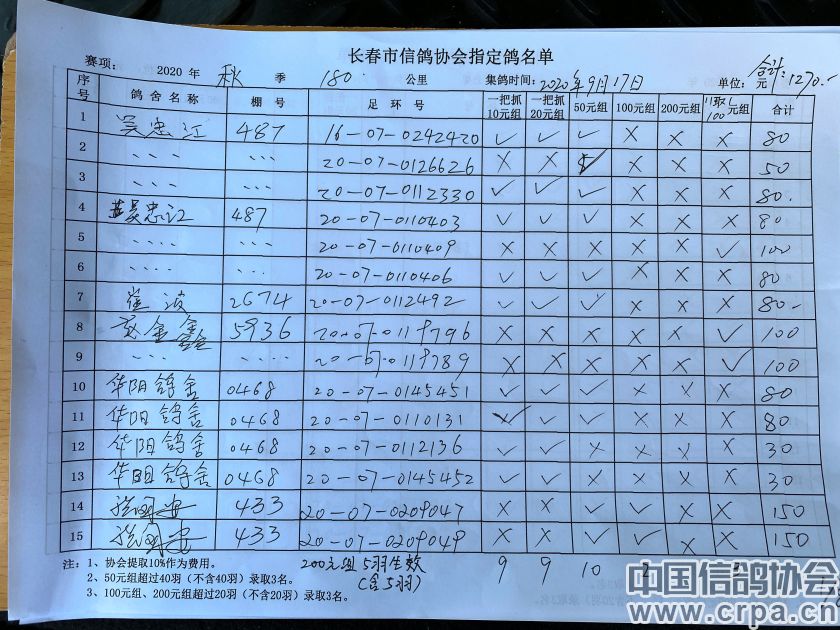 长春市信鸽协会指定鸽名单
赛项： 2020 年 秋 季 180 公里 集鸽时间：2020年9月17日 单位：元 合计：1270.-
序号 鸽舍名称 棚号 足环号 一把抓10元组 一把抓20元组 50元组 100元组 200元组 11取1 100元组 合计
1 吴忠江 487 16-07-0242420 ✓ ✓ ✓ × × × 80
2 、、、 、、、 20-07-0126626 × × ✓ × × × 50
3 、、、 、、、 20-07-0112330 ✓ ✓ ✓ × × × 80.
4 吴忠江 487 20-07-0110403 ✓ ✓ ✓ × × × 80
5 、、、、 、、、 20-07-0110409 × × × × × ✓ 100
6 、、、、 、、、 20-07-0110406 ✓ ✓ ✓ × × × 80
7 崔波 2674 20-07-0112492 ✓ ✓ ✓ × × × 80-
8 金鑫 5936 20-07-0118796 × × × × × ✓ 100
9 、、、、 、、、 20-07-0118789 × × × × × ✓ 100
10 华阳鸽舍 0468 20-07-0145451 ✓ ✓ ✓ × × × 80
11 华阳鸽舍 0468 20-07-0110131 ✓ ✓ ✓ × × × 80
12 华阳鸽舍 0468 20-07-0112136 ✓ ✓ × × × × 30
13 华阳鸽舍 0468 20-07-0145452 ✓ ✓ × × × × 30
14 433 20-07-0209047 × × ✓ ✓ × × 150
15 433 20-07-0209049 × × ✓ ✓ × × 150
注：1、协会提取10%作为费用。 200元组5羽生效 9 9 10 2
2、50元组超过40羽（不含40羽）录取3名。 （含5羽）
3、100元组、200元组超过20羽（不含20羽）录取3名。
中国信鸽协会
www.crpa.cn